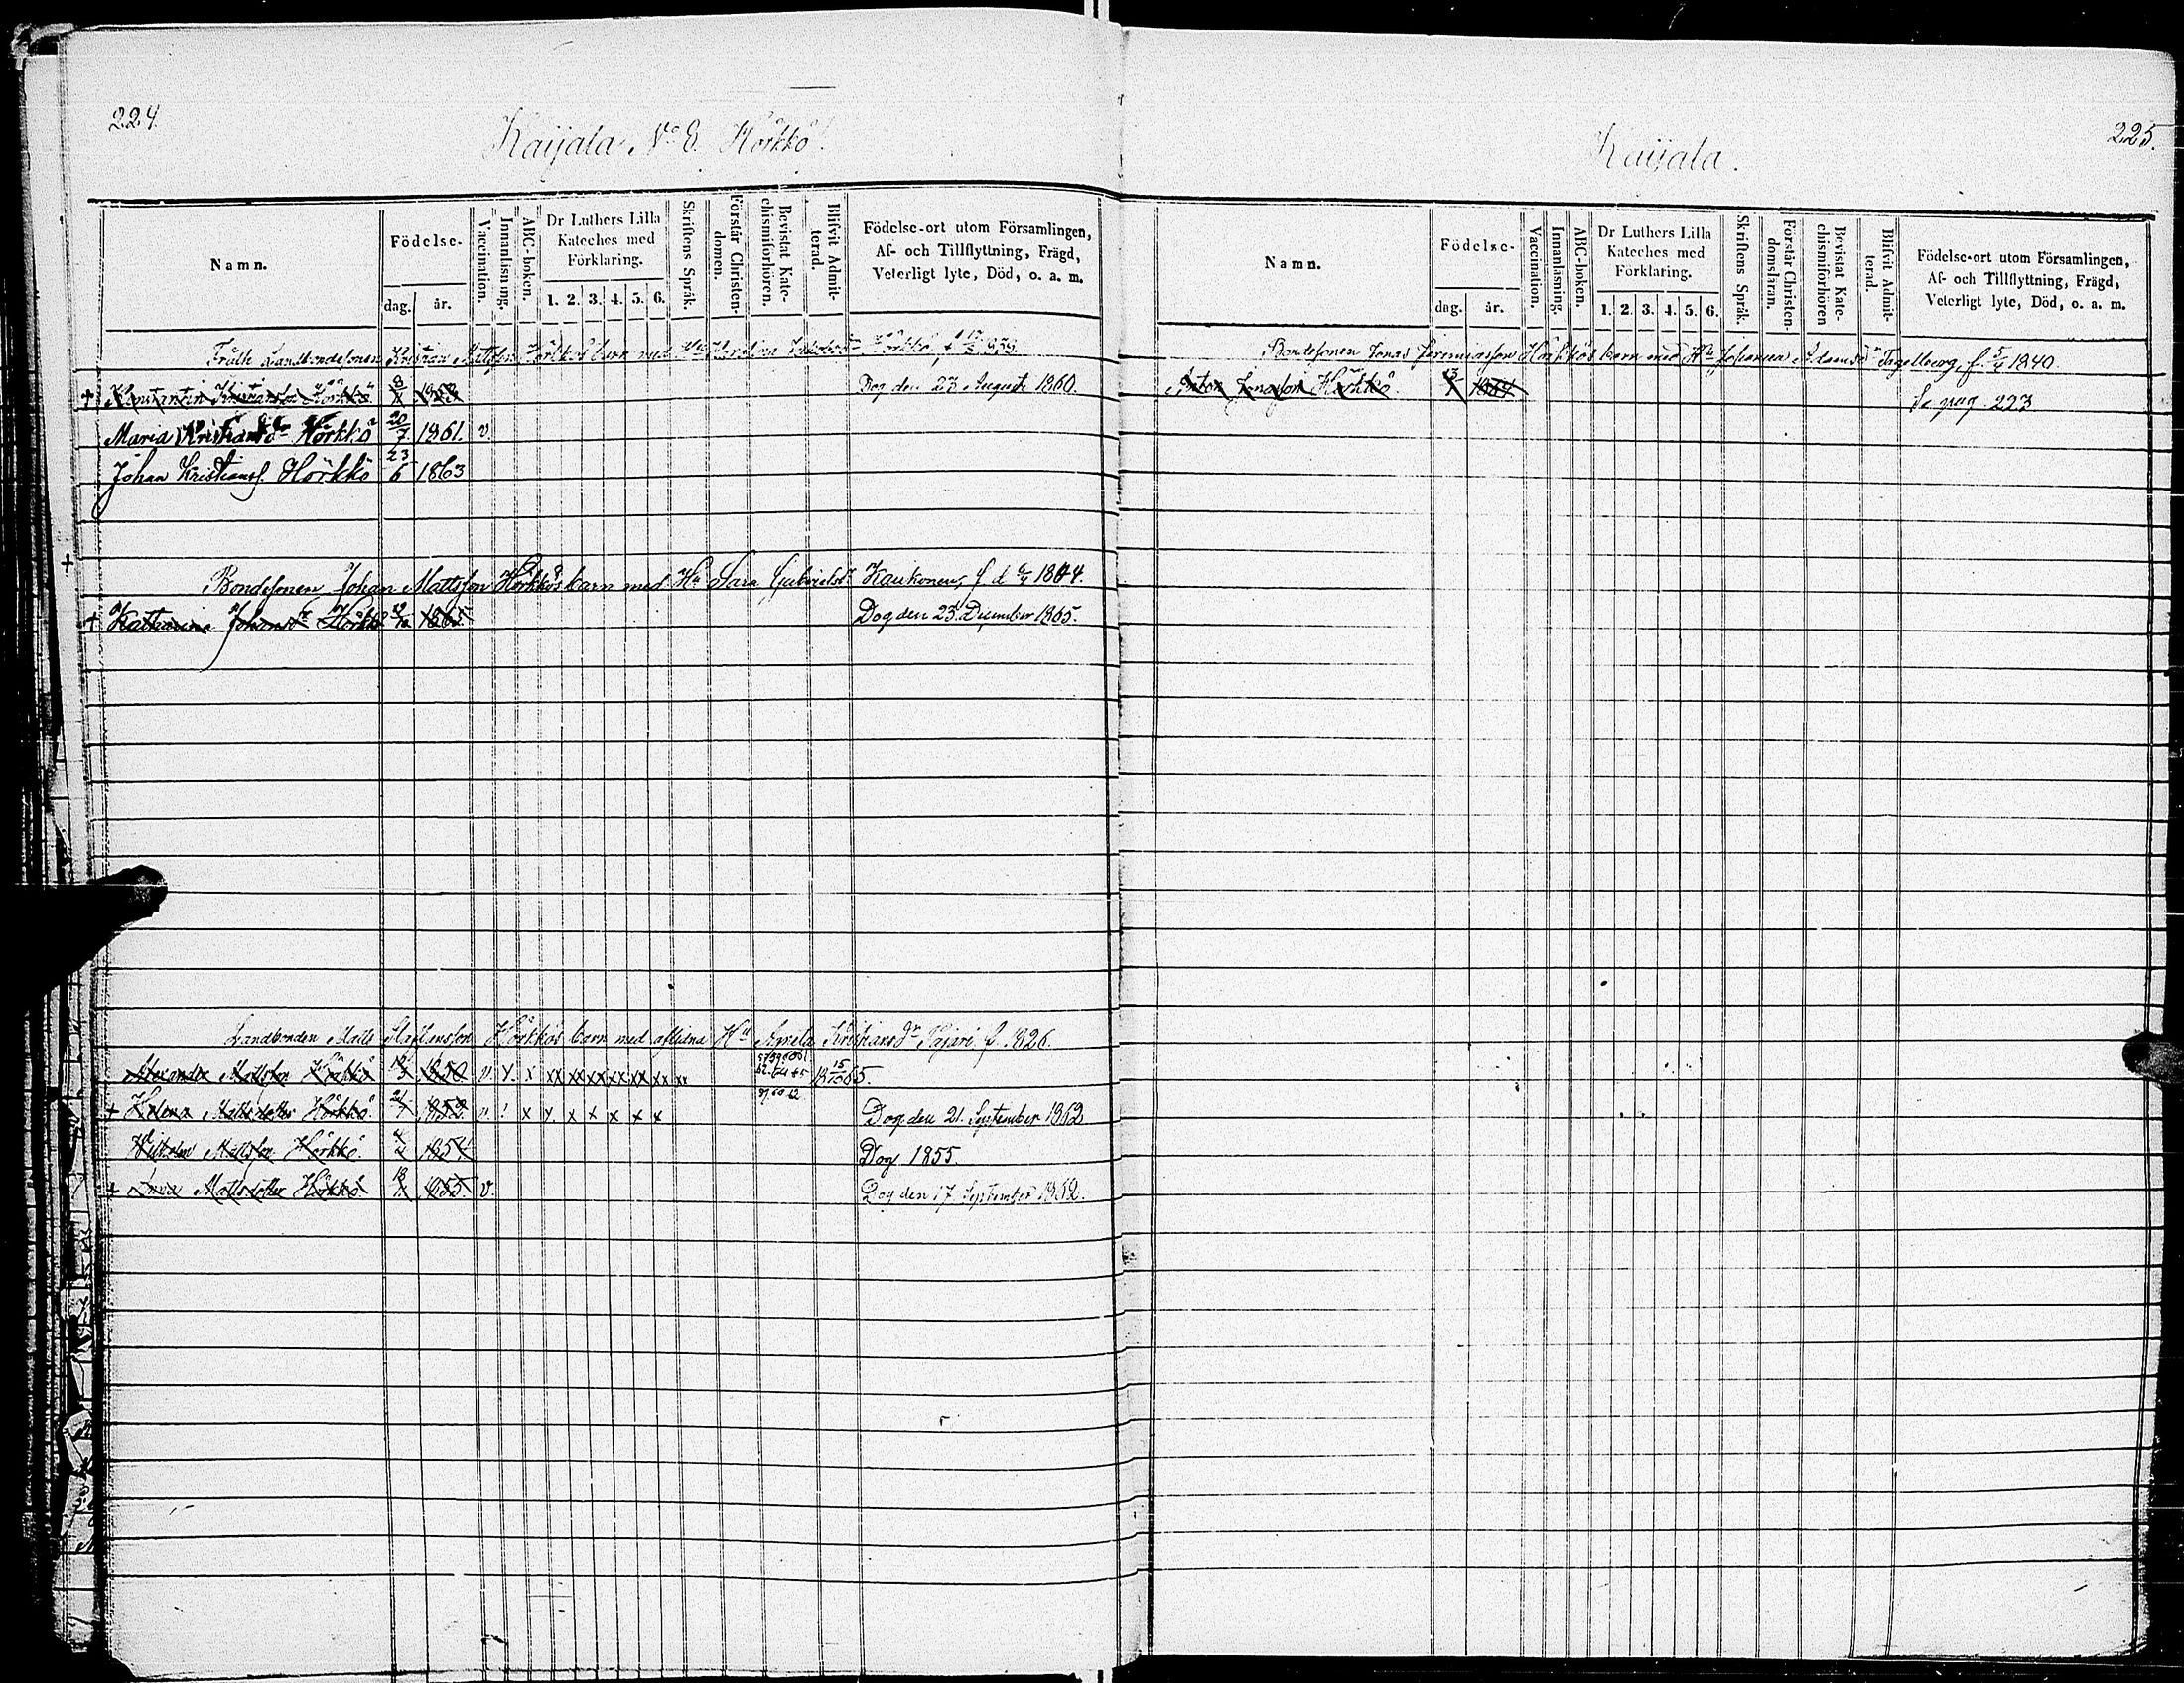 224.
Kaijala No 8. Hörkkö.
Namn.
Födelse-
dag.
år.
Vaccination.
Innanläsning.
ABC-boken.
Dr Luthers Lilla
Kateches med
Förklaring.
1. 2. 3. 4. 5. 6.
Skriftens Språk.
Förstår Christen-
domen.
Bevistat Kate-
chismiförhören.
Blifvit Admit-
terad.
Födelse-ort utom Församlingen,
Af- och Tillflyttning, Frägd,
Veterligt lyte, Död, o. a. m.
Kristian Mattsson Hörkkös barn med Hu Karolina Hörkkö
+ Konstantin Kristiansson Hörkkö 8/11 1858 Dog den 23 Augusti 1860.
Maria Kristiansdr Hörkkö 20/7 1861. v.
Johan Kristianss. Hörkkö 23/6 1863
Bondesonen Johan Mattsson Hörkkös barn med Hu Sara Gabrielsdr Kaukonen, f. d. 6/4 1844.
+ Katharina Johansdr Hörkkö 1865 Dog den 23. December 1865.
Landbonden Matts Hörkkös barn med aflidna Hu Amela Kristiansdr Pajari f. 1826.
Alexander Mattsson Hörkkö 1850 v. x x xx xx xx xx xx xx xx 18 15/10 65.
+ Helena Mattsdotter Hörkkö 21/7 1853 v x x x x x x x Dog den 21. September 1862
Wilhelm Mattsson Hörkkö 1854 Dog 1855.
+ Mattsdotter Hörkkö 1855. v. Dog den 17. September 1862.
225.
Kaijala.
Namn.
Födelse-
dag.
år.
Vaccination.
Innanläsning.
ABC-boken.
Dr Luthers Lilla
Kateches med
Förklaring.
1. 2. 3. 4. 5. 6.
Skriftens Språk.
Förstår Christen-
domsläran.
Bevistat Kate-
chismiförhören
Blifvit Admit-
terad.
Födelse-ort utom Församlingen,
Af- och Tillflyttning, Frägd,
Veterligt lyte, Död, o. a. m.
Bondesonen Jonas Jeremiasson Hörkkös barn med Hu Johanna Adamsdr Fagelberg, f. 5/4 1840.
Anton Jonasson Hörkkö 1864 Se pag. 223